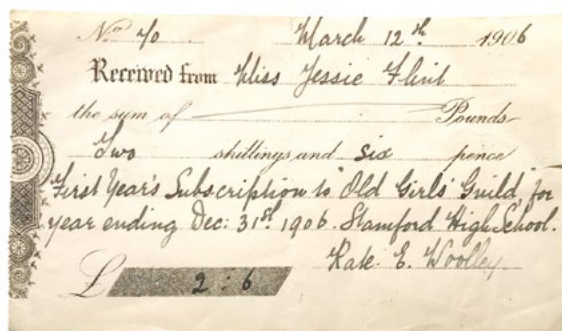 No 40 March 12th 1906
Received from Miss Jessie Flint
the sum of Pounds
Two shillings and six pence
First Year's Subscription to "Old Girls' Guild" for
year ending Dec: 31st 1906. Stamford High School.
Kate. E. Woolley
£ 2 : 6